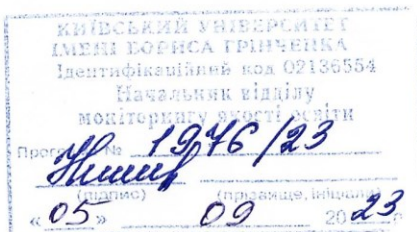 КИЇВСЬКИЙ УНІВЕРСИТЕТ
ІМЕНІ БОРИСА ГРІНЧЕНКА
Ідентифікаційний код 02136554
Начальник відділу
моніторингу якості освіти
№ 1976/23
(підпис) (прізвище, ініціали)
« 05 » 09 20 23